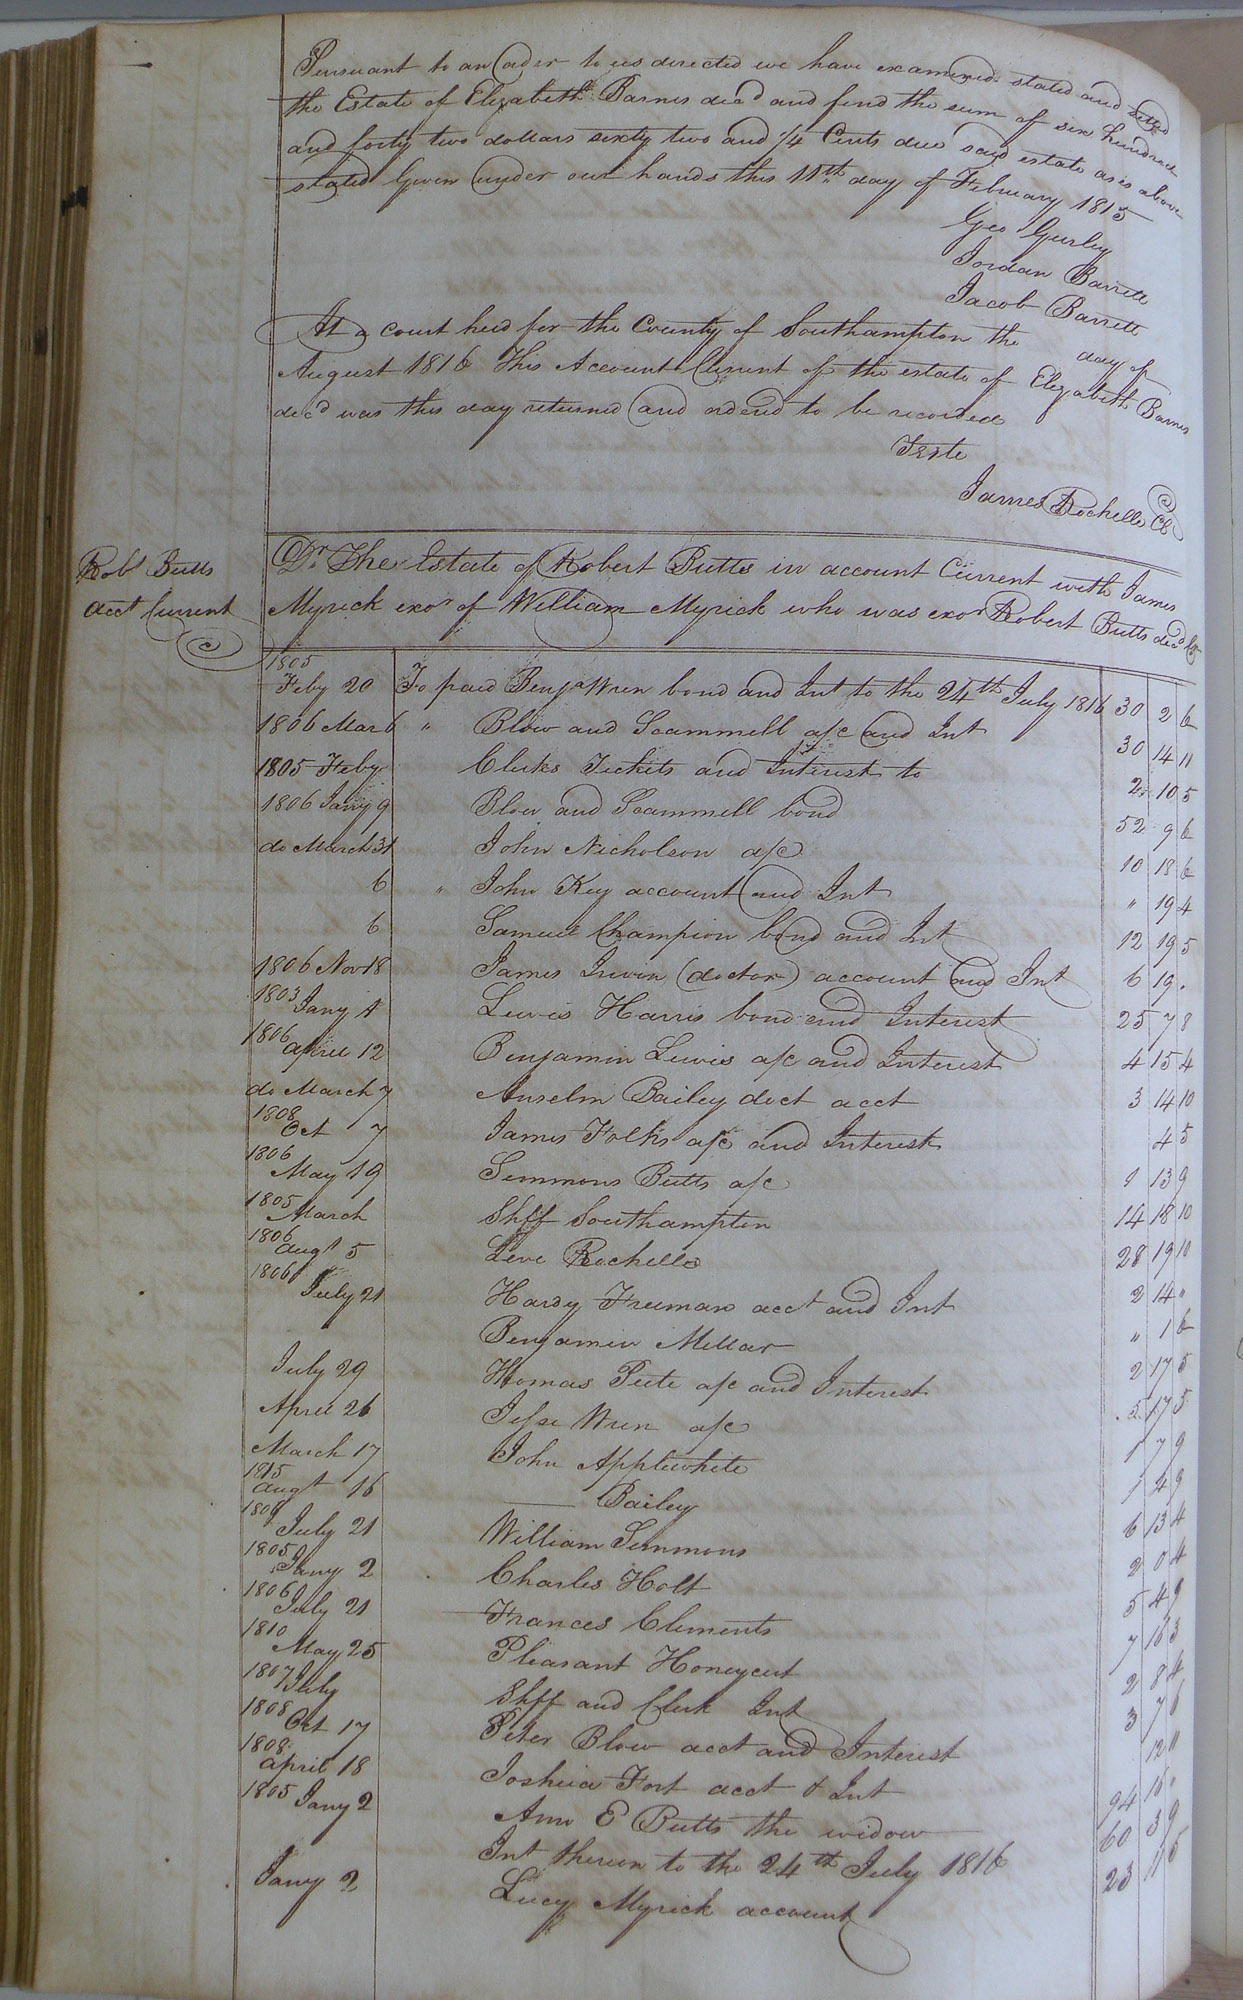 Pursuant to an order to us directed we have examined stated and settled
the Estate of Elizabeth Barnes decd and find the sum of six hundred
and forty two dollars sixty two and 1/4 Cents due said estate as is above
stated Given under our hands this 11th day of February 1815
Geo Gurley
Jordan Barrett
Jacob Barrett
At a court held for the County of Southampton the day of
August 1816 This Account Current of the estate of Elizabeth Barnes
decd was this day returned and ordered to be recorded
Teste
James Rochelle Clk
Robt Butts
acct Current
Dr The Estate of Robert Butts in account Current with James
Myrick exor of William Myrick who was exor Robert Butts decd Cr
1805
Feby 20 To paid Benja Wren bond and Int to the 24th July 1816 30 2 6
1806 Mar 6 " Blow and Scammell a/c and Int 30 14 11
1805 Feby Clerks Tickets and Interest to 2 10 5
1806 Jany 9 Blow and Scammell bond 52 9 6
do March 31 John Nicholson a/c 10 18 6
6 " John Key account and Int " 19 4
6 Samuel Champion bond and Int 12 19 5
1806 Nov 18 James Irwin (doctor) account and Int 6 19 .
1803 Jany 1 Lewis Harris bond and Interest 25 7 8
1806 April 12 Benjamin Lewis a/c and Interest 4 15 4
do March 7 Anselm Bailey doct acct 3 14 10
1808 Oct 7 James Folks a/c and Interest 4 5
1806 May 19 Simmons Butts a/c 1 13 9
1805 March Shff Southampton 14 18 10
1806 Augt 5 Levi Rochelle 28 19 10
1806 July 21 Hardy Freeman acct and Int 2 14 "
Benjamin Millar " 1 6
July 29 Thomas Pete a/c and Interest 2 17 5
April 26 Jesse Wren a/c 5 17 5
March 17 John Applewhite 1 7 9
1815 Augt 16 —— Bailey 1 4 9
July 21 William Simmons 6 13 4
1805 Jany 2 Charles Holt 2 0 4
1806 July 21 Frances Clements 5 4 9
1810 May 25 Pleasant Honeycut 7 3
1807 July Shff and Clerk Int 2 8 4
1808 Oct 17 Peter Blow acct and Interest 3 7 6
1808 April 18 Joshua Fort acct & Int 12 "
1805 Jany 2 Ann E Butts the widow 94 "
Int thereon to the 24th July 1816 60 3 9
Jany 2 Lucy Myrick account 23 11 5